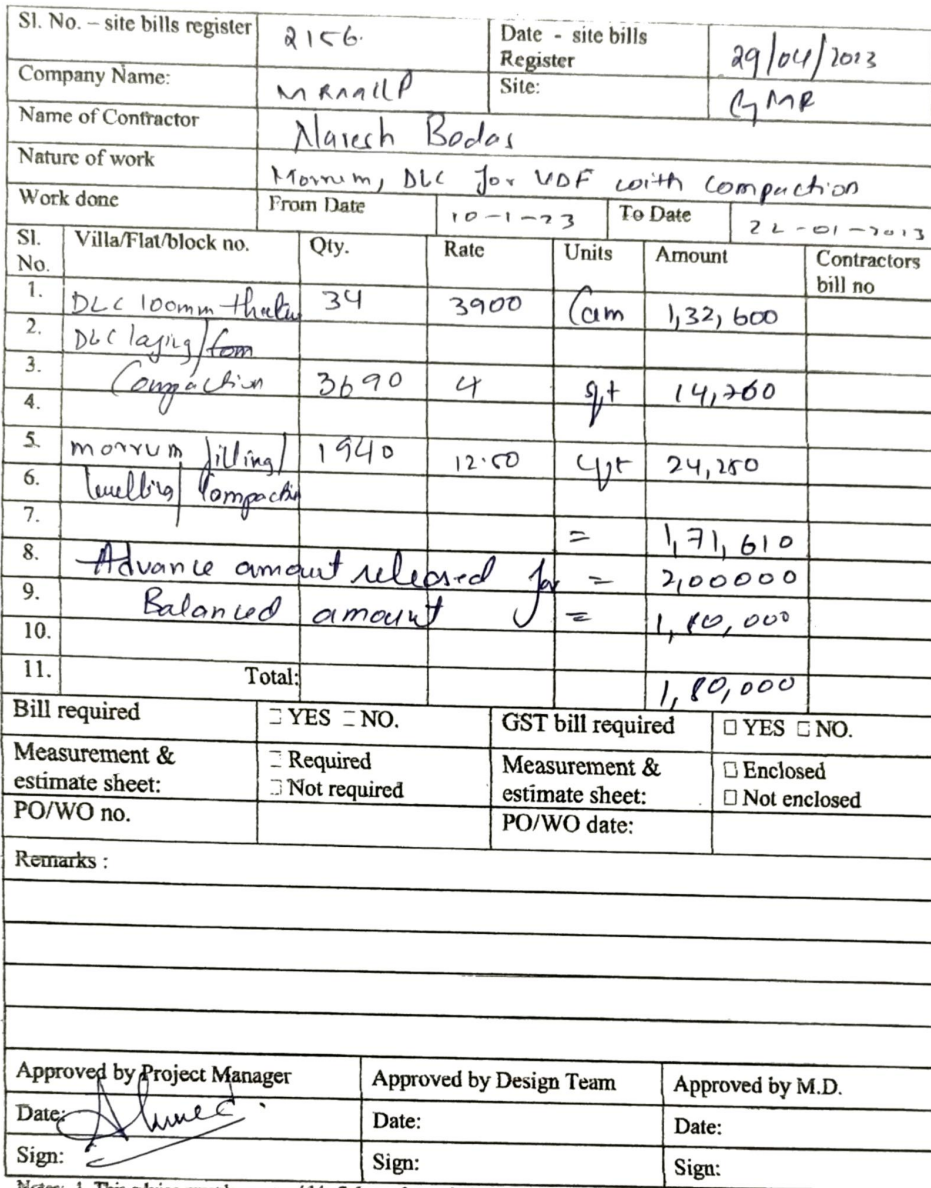 Sl. No. – site bills register 2156. Date - site bills Register 29/04/2013
Company Name: MRMLLP Site: GMR
Name of Contractor Naresh Bodas
Nature of work Morrum, DLC for VDF with compaction
Work done From Date 10-1-23 To Date 22-01-2013
Sl. No. Villa/Flat/block no. Qty. Rate Units Amount Contractors bill no
1. DLC 100mm 34 3900 Cum 1,32,600
2. DLC laying/
3. Compaction 3690 4 sft 14,760
4.
5. morrum filling/ 1940 12.50 cft 24,250
6. levelling/ Compaction
7. = 1,71,610
8. Advance amount released for = 2,00000
9. Balanced amount = 1,80,000
10.
11. Total: 1,80,000
Bill required □ YES □ NO. GST bill required □ YES □ NO.
Measurement & estimate sheet: □ Required Measurement & estimate sheet: □ Enclosed
□ Not required □ Not enclosed
PO/WO no. PO/WO date:
Remarks :
Approved by Project Manager Approved by Design Team Approved by M.D.
Date: Date: Date:
Sign: Sign: Sign: